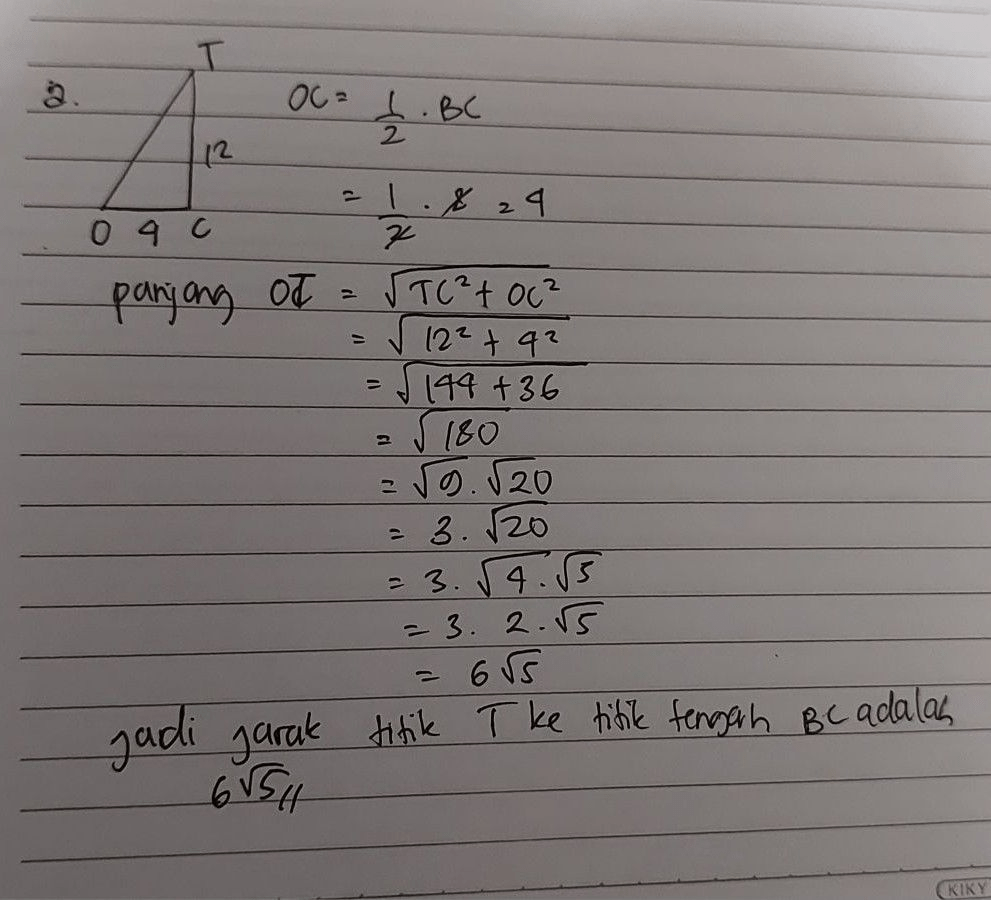 2.
T
12
O 4 C
OC = 1/2 . BC
= 1/2 . 8 = 4
panjang OT = √TC² + OC²
= √12² + 4²
= √144 + 36
= √180
= √9 . √20
= 3 . √20
= 3 . √4 . √5
= 3 . 2 . √5
= 6 √5
jadi jarak titik T ke titik tengah BC adalah
6 √5 //
KIKY